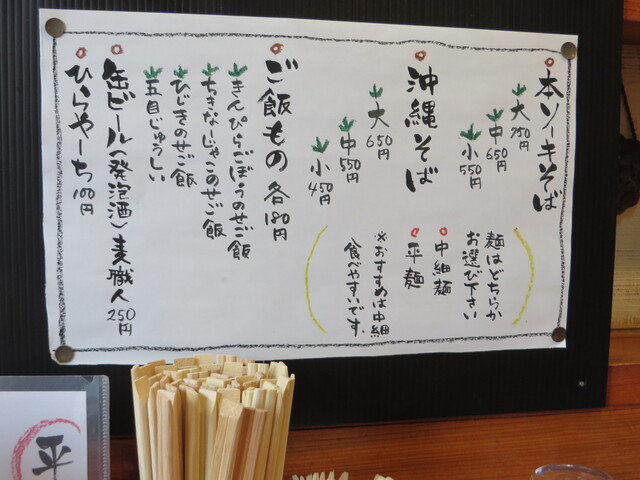 本ソーキそば
大 750円
中 650円
小 550円
麺はどちらか
お選び下さい
中細麺
平麺
※おすすめは中細
食べやすいです。
沖縄そば
大 650円
中 550円
小 450円
ご飯もの 各180円
きんぴらごぼうのせご飯
ちきなーじゃこのせご飯
ひじきのせご飯
五目じゅうしい
缶ビール(発泡酒)麦職人 250円
ひらやーち 100円
平